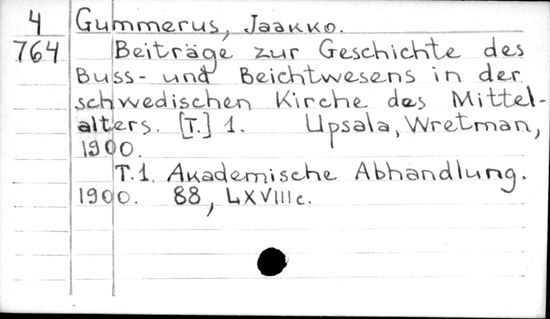 4 Gummerus, Jaakko.
764 Beiträge zur Geschichte des
Buss- und Beichtwesens in der
schwedischen Kirche des Mittel-
alters. [T.] 1. Upsala, Wretman,
1900.
T.1. Akademische Abhandlung.
1900. 88, LXVIII c.